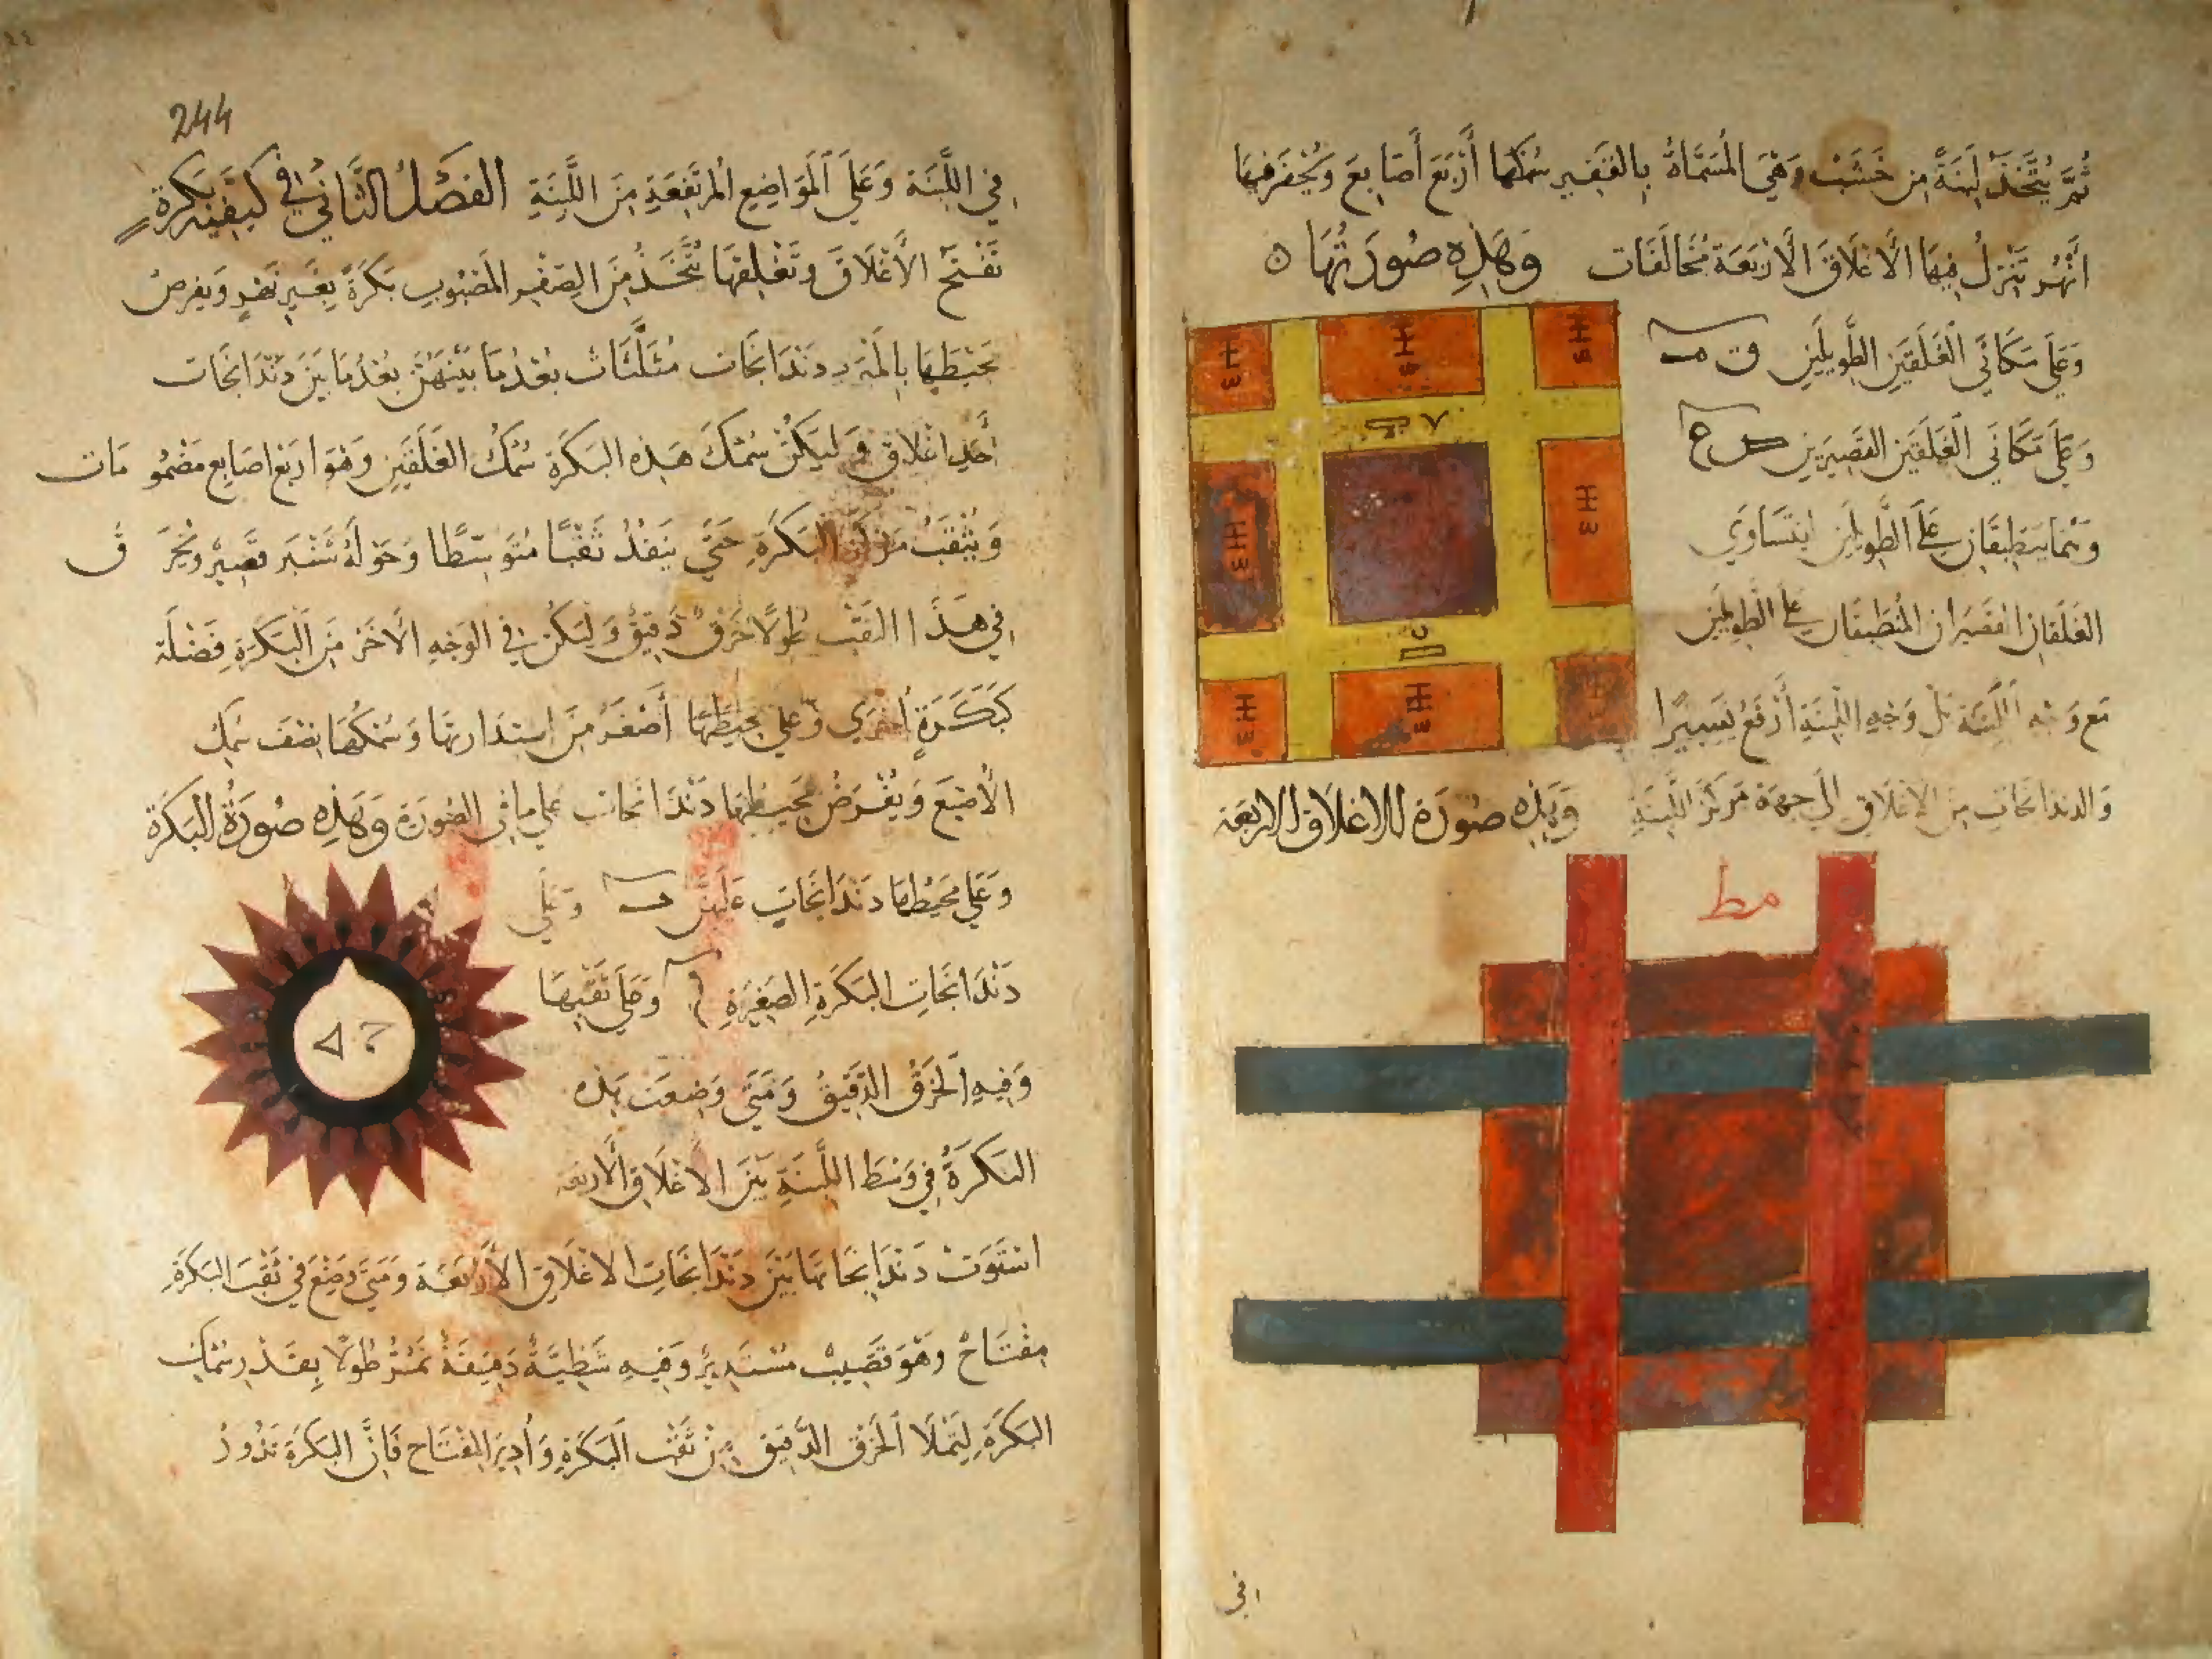 ثُمَّ يُتَّخَذُ لَبِنَةً مِن خَشَبٍ وَهِيَ المُسَمَّاةُ بِالقَفِيرِ سُمْكُهَا أَرْبَعَ أَصَابِعَ وَيُحْفَرُ فِيهَا
انْهُر تَنْزِلُ فِيهَا الأَغْلَاقَ الأَرْبَعَة مُخَالَفَات وَهَذِهِ صُورَتُهَا ٥
وَعَلَى مَكَانَي الغَلَقَيْنِ الطَّوِيلَيْنِ
وَعَلَى مَكَانَي الغَلَقَيْنِ القَصِيرَيْنِ
يَنْطَبِقَانِ عَلَى الطَّوِيلَيْنِ لِيَتَسَاوَي
الغَلَقَانِ القَصِيرَانِ المُنْطَبِقَان عَلَى الطَّوِيلَيْنِ
مَع وَجْه اللَّبِنَة بَل وَجْهِ اللَّبِنَةِ أَرْفَعُ يَسِيرًا
وَالدندَانجَات مِنَ الأَغْلَاقِ إِلَى جِهَة مَرْكَزِ اللَّبِنَةِ وَهَذِهِ صُورَة الاغلَاقِ الاربَعَة
مط
في
244
فِي اللَّبِنَة وَعَلَى المَوَاضِعِ المُرْتَفِعَةِ مِنَ اللَّبِنَةِ الفَصْلُ الثَّانِي فِي كَيْفِيَّة بَكَرَةٍ
تَفْتَحُ الأَغْلَاقَ وَتَغْلِقُهَا تُتَّخَذُ مِنَ الصُّفْرِ المَصْبُوبِ بَكَرَةٌ بِغَيْرِ نَهْرٍ وَيفرض
مُحِيطُهَا بِالمَبْرَدِ دَنْدَانجَات مُثَلَّثَات بُعْدُ مَا بَيْنَهُنَّ بُعْدُ مَا بَيْنَ دَنْدَانجَات
أَحَدِ اغْلَاقٍ وَلْيَكُنْ سُمْكُ هَذِهِ البَكَرَة سُمْكُ الغَلَقَيْنِ وَهُوَ ارْبَعُ اصَابِعَ مَضْمُو مَات
وَيُثْقَبُ مَرْكَزُ البَكَرَةِ حَتَّى يَنْفُذُ ثَقْبًا مُتَوَسِّطًا وَحَوْلَهُ وَيُخْرَ ق
فِي هَذَا الثَّقْبِ طُولًا خَرْقٌ دَقِيقٌ وَلْيَكُنْ فِي الوَجْهِ الآخَرِ مِنَ البَكَرَةِ فَضْلَة
كَبَكَرَةٍ أُخْرَى وَعَلَى مُحِيطِهَا أَصْغَرُ مِن اسْتِدَارَتِهَا وَسُمْكُهَا نِصْفُ سُمْك
الأُصْبَع وَيُفْرَضُ مُحِيطُهَا دَنْدَانجَات عَلَى مَا فِي الصُّورَة وَهَذِهِ صُورَةُ البَكَرَة
وَعَلَى مُحِيطِهَا دَنْدَانجَاتٍ عَلَيْهِنَّ وَعَلَى
دَنْدَانجَاتِ البَكَرَةِ الصَّغِيرَةِ وَعَلَى ثَقْبِهَا
وَفِيهِ الخَرْقُ الدَّقِيقُ وَمَتَى وُضِعَت هَذِه
البَكَرَةُ فِي وَسَطِ اللَّبِنَةِ بَيْنَ الأَغْلَاقِ الأَرْبَعَة
اسْتَوَتْ دَنْدَانجَاتهَا بَيْنَ دَنْدَانجَاتِ الأَغْلَاقِ الأَرْبَعَة وَمَتَى وُضِعَ فِي ثَقْبِ البَكَرَةِ
مِفْتَاحٌ وَهُوَ قَضِيبٌ مُسْتَدِيرٌ وَفِيهِ شَظِيَّةٌ دَقِيقَةٌ تَمُرُّ طُولًا بِقَدْرِ سُمْكِ
البَكَرَةِ لِتَمْلَا الخَرْقَ الدَّقِيقَ مِنْ ثَقْبِ البَكَرَةِ وَأُدِيرَ المِفْتَاح فَإِنَّ البَكَرَة تَدُورُ